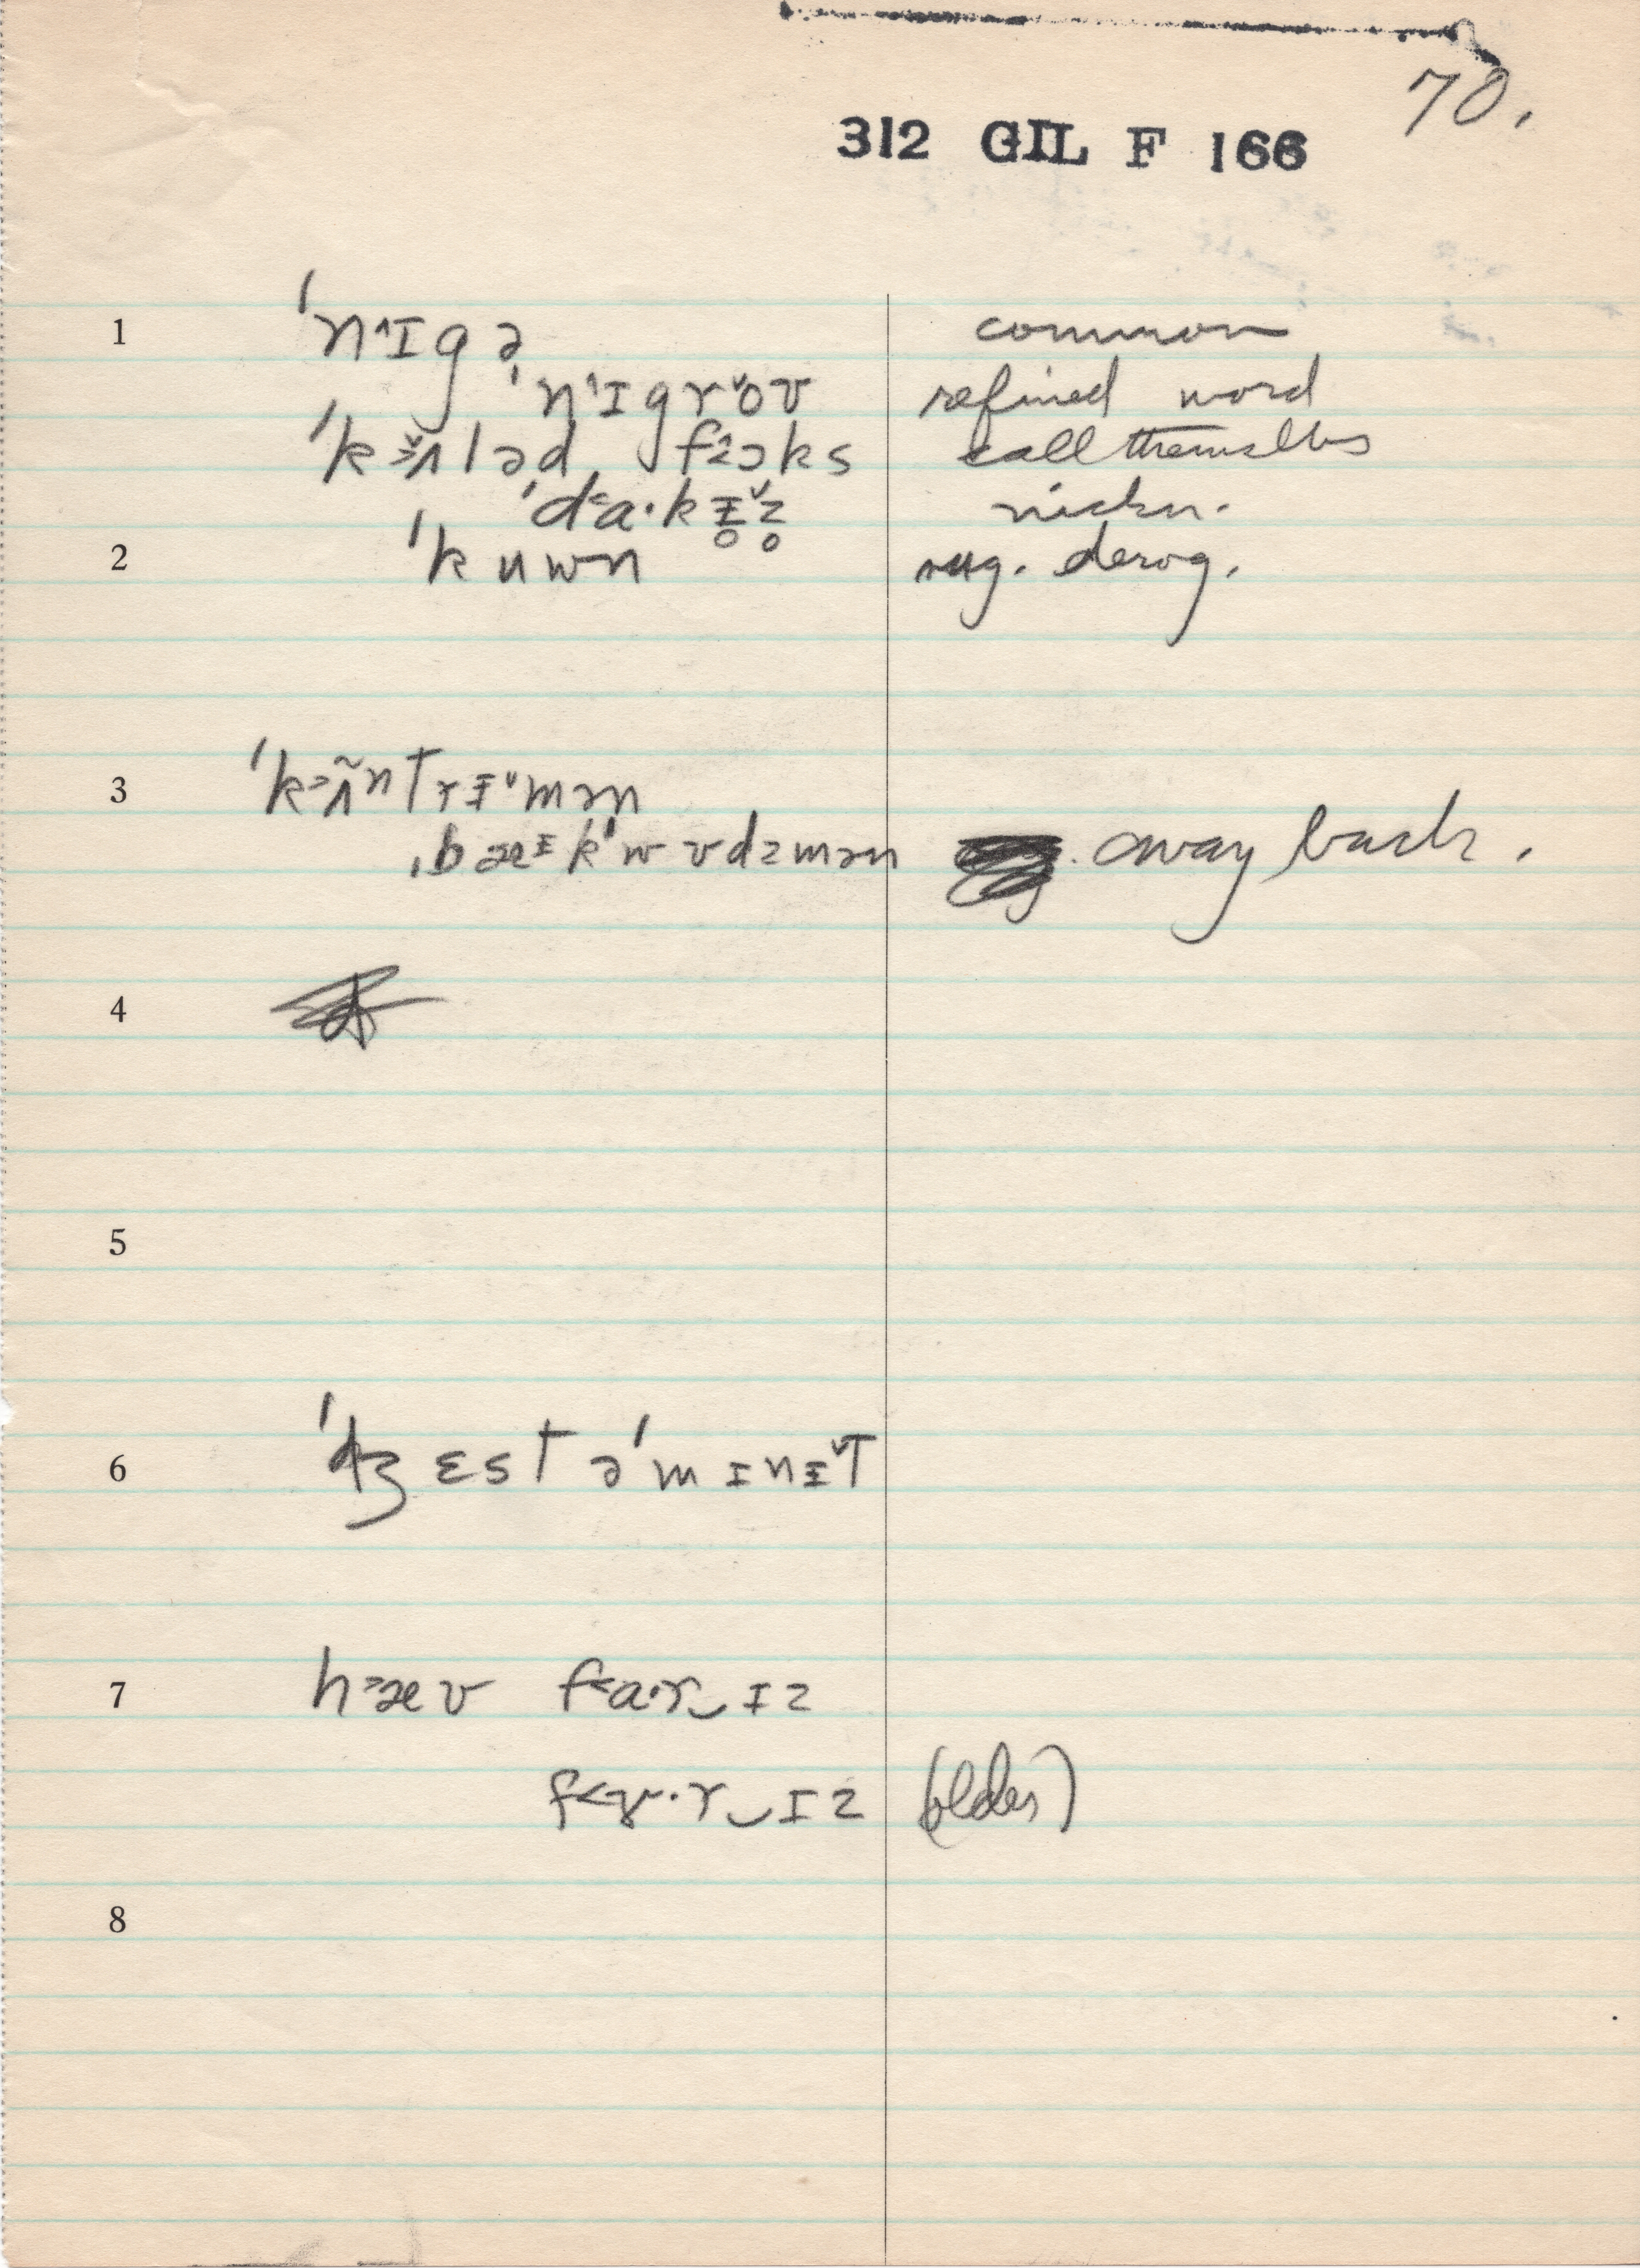 70.
312 GIL F 166
1 ˈn˄ɪgə common
ˈn˄ɪgrˇoʊ refined word
ˈkʌləd ˌf˂ɔks call themselves
ˈd˂a·kɪ̵̥ˇz̥ nickn.
2 ˈkuwn neg. derog.
3 ˈk˃ʌ̃ntrɪ̵ˇmən
ˌbæᵻkˈwʊdzmən away back.
4
5
6 ˈdʒɛst əˈmɪnɪ̵ˇt
7 h˃æv f˂a·r‿ɪz
f˂ɤ·r‿ɪz (older)
8